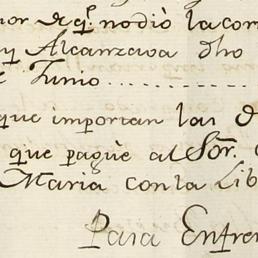 por de q.e no dió la cor
Alcanzava dho
e Junio
que importan las d
que pague al Sor.
Maria con la Lib
Para Entre